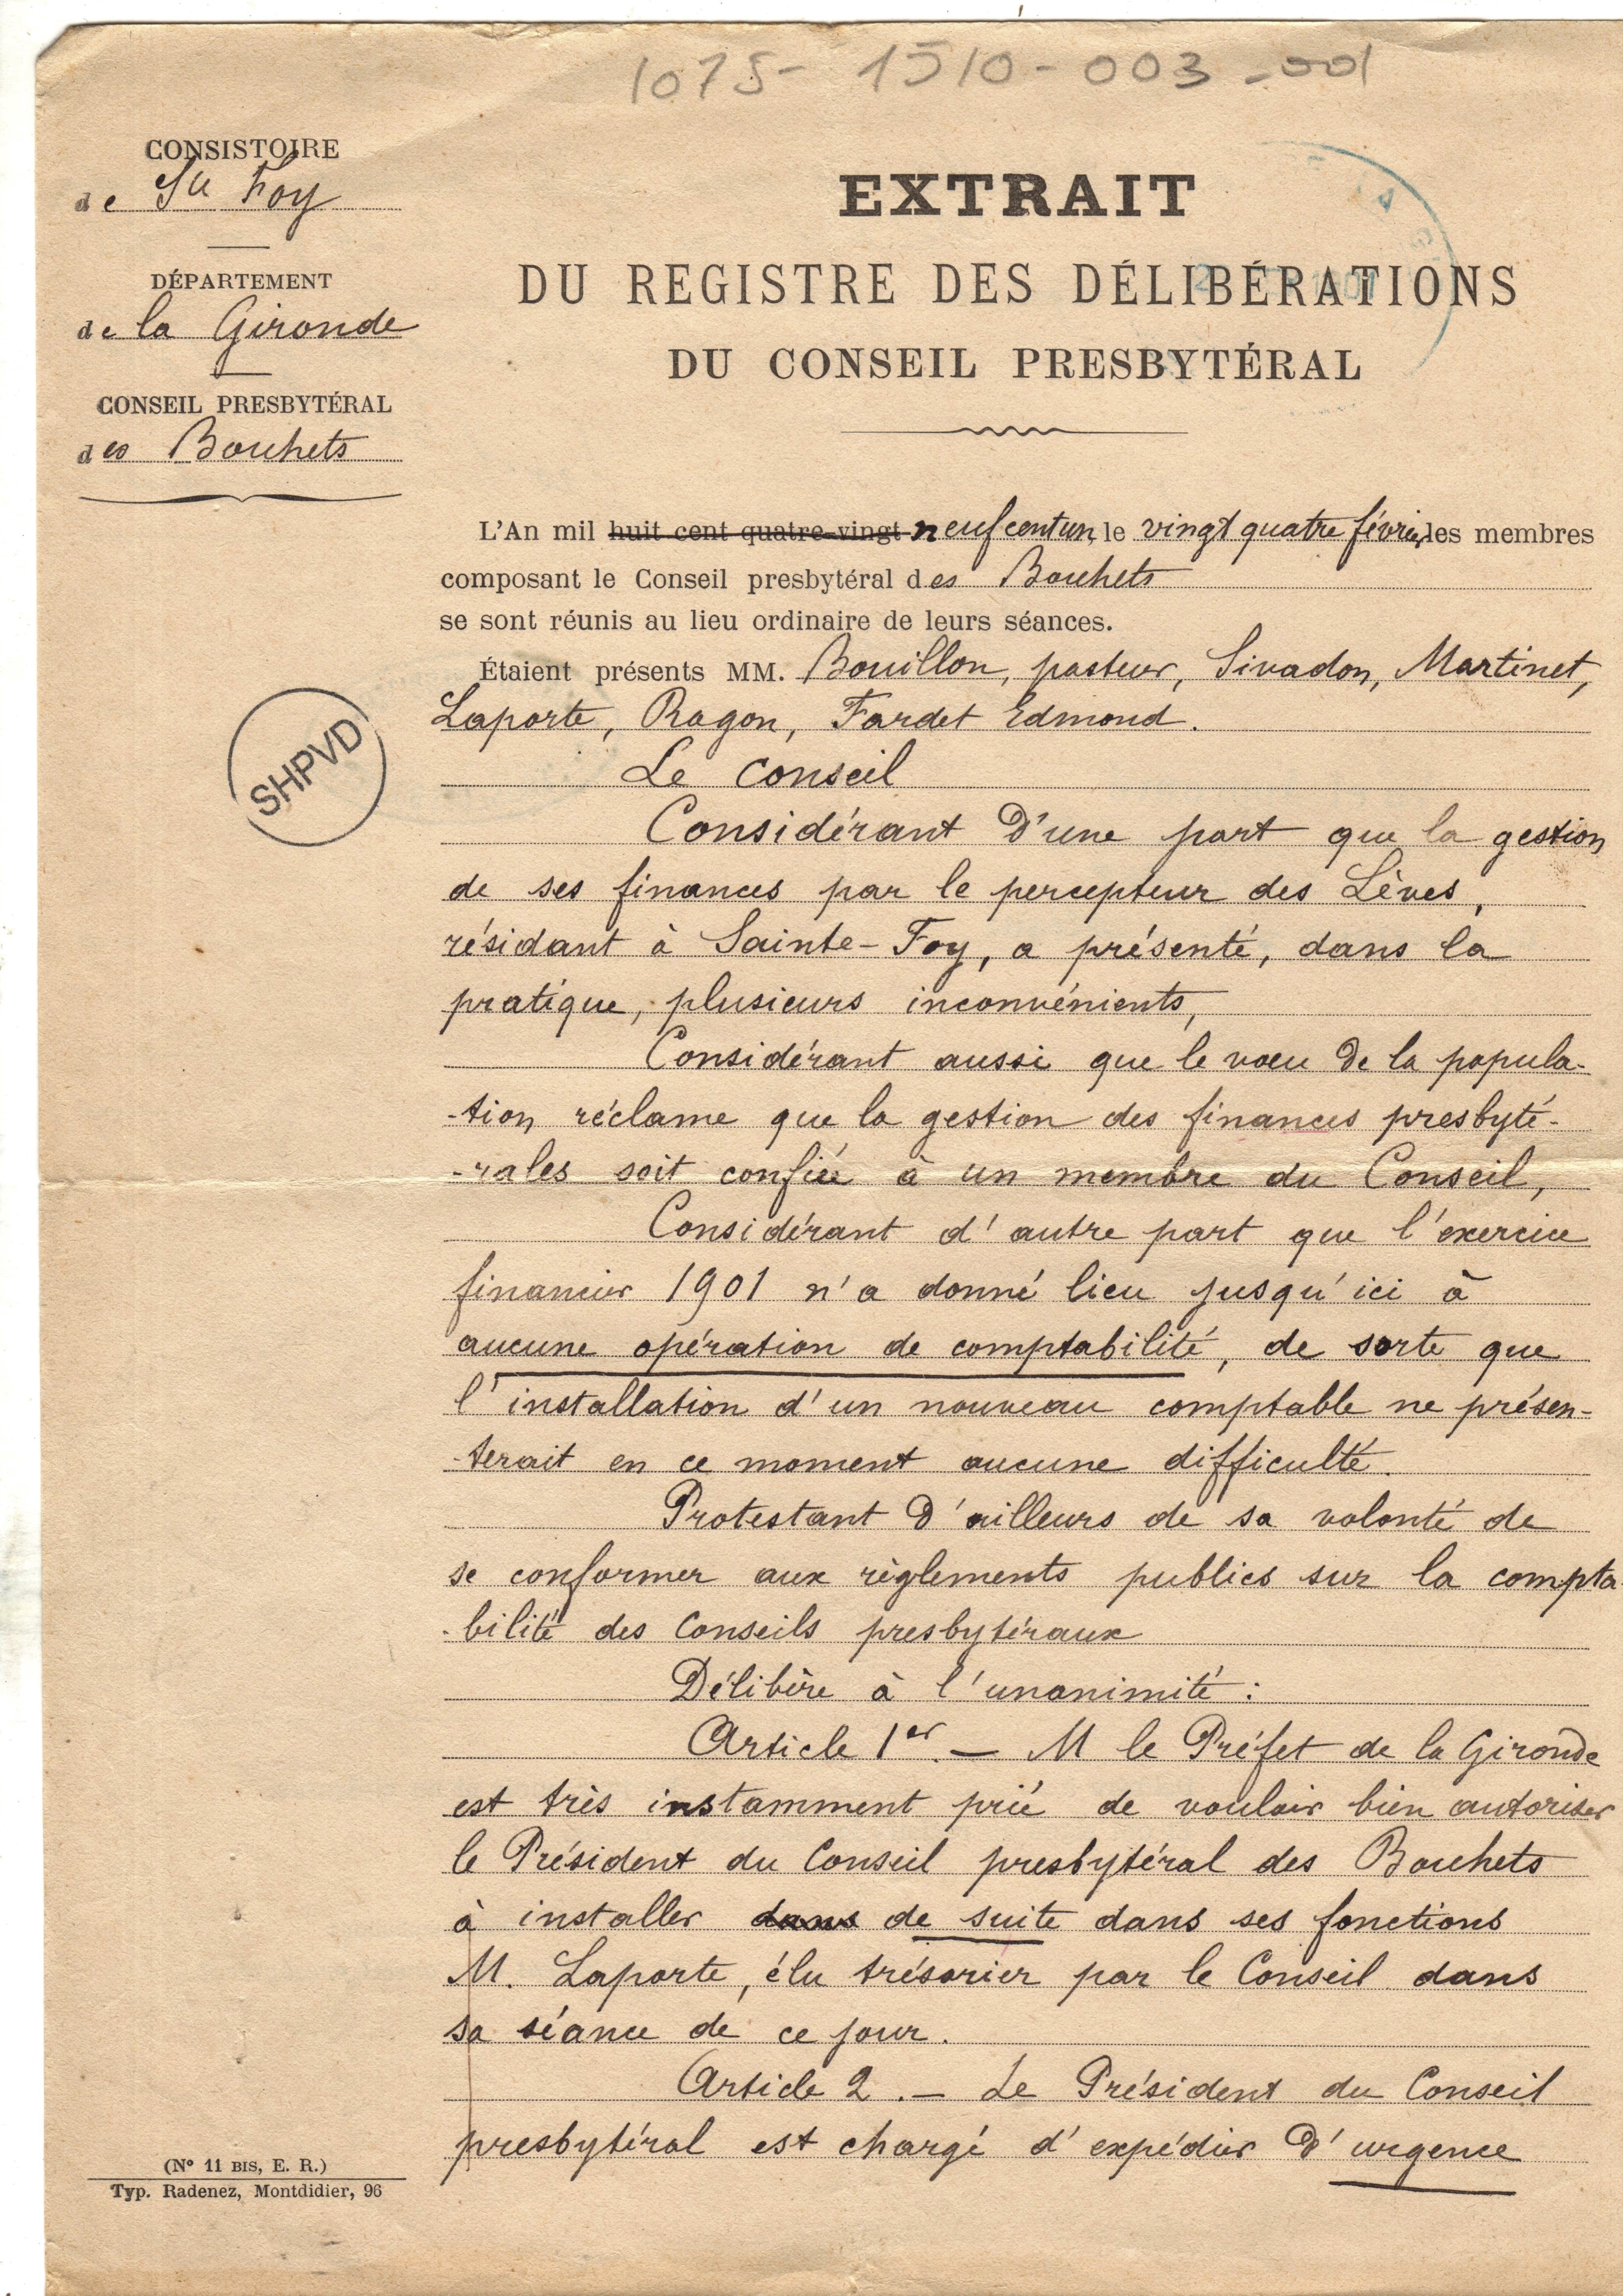 1075- 1510-003-001
CONSISTOIRE
de Ste Foy
DÉPARTEMENT
de la Gironde
CONSEIL PRESBYTÉRAL
des Bouhets
EXTRAIT
DU REGISTRE DES DÉLIBÉRATIONS
DU CONSEIL PRESBYTÉRAL
L'An mil huit cent quatre-vingt neuf cent un, le vingt quatre février, les membres
composant le Conseil presbytéral des Bouhets
se sont réunis au lieu ordinaire de leurs séances.
Étaient présents MM. Bouillon, pasteur, Sivadon, Martinet,
Laporte, Ragon, Fardet Edmond.
SHPVD
Le Conseil
Considérant d'une part que la gestion
de ses finances par le percepteur des Lèves,
résidant à Sainte-Foy, a présenté, dans la
pratique, plusieurs inconvénients,
Considérant aussi que le vœu de la popula-
-tion réclame que la gestion des finances presbyté-
-rales soit confiée à un membre du Conseil,
Considérant d'autre part que l'exercice
financier 1901 n'a donné lieu jusqu'ici à
aucune opération de comptabilité, de sorte que
l'installation d'un nouveau comptable ne présen-
-terait en ce moment aucune difficulté.
Protestant d'ailleurs de sa volonté de
se conformer aux règlements publics sur la compta
-bilité des Conseils presbytéraux
Délibère à l'unanimité :
Article 1er. — M le Préfet de la Gironde
est très instamment prié de vouloir bien autoriser
le Président du Conseil presbytéral des Bouhets
à installer dans de suite dans ses fonctions
M. Laporte, élu trésorier par le Conseil dans
sa séance de ce jour.
Article 2. — Le Président du Conseil
presbytéral est chargé d'expédier d'urgence
(N° 11 BIS, E. R.)
Typ. Radenez, Montdidier, 96